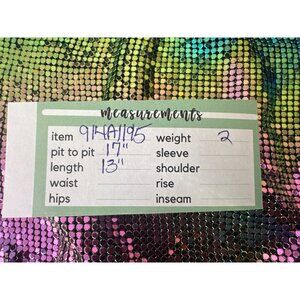 measurements
item 914A1195 weight 2
pit to pit 17" sleeve
length 13" shoulder
waist rise
hips inseam